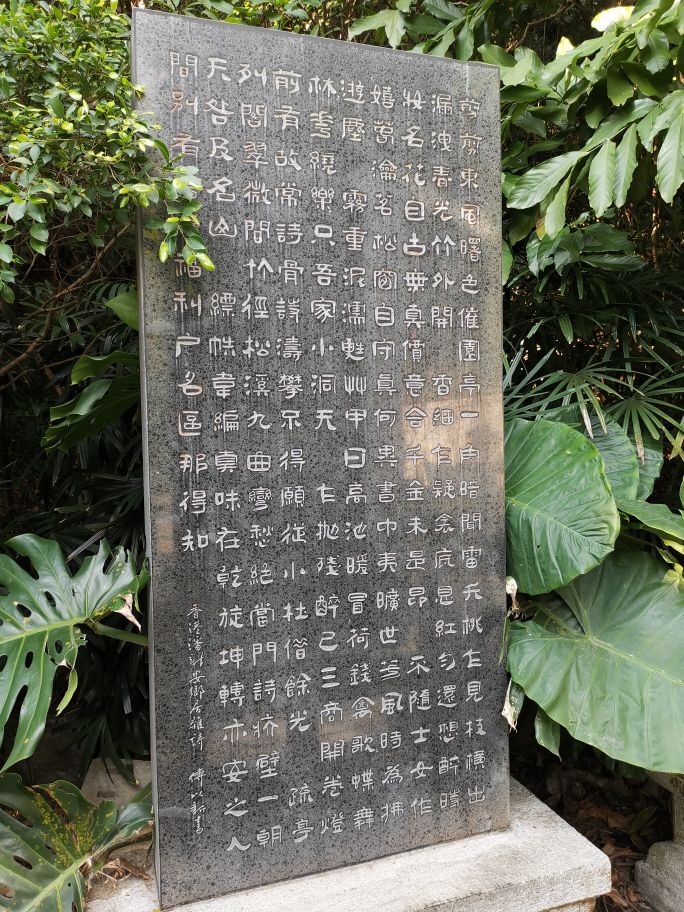 剪剪東風曙色催園亭一角暗聞雷夭桃乍見枝橫出
漏洩春光竹外開 香細乍疑衾底息紅勻還想醉時
妝名花自古無真價意合千金未是昂 不隨士女作
嬉瀹茗松窗自守真何異書中夷曠世風時為拂
遊塵 霧重泥濡甦艸甲日高池暖冒荷錢禽歌蝶舞
林繞樂只吾家小洞天 乍拋殘醉已三商開卷燈
前有故常詩骨詩濤攀不得願從小杜借餘光 疏亭
列閣翠微間竹徑松溪九曲彎愁絕當門詩疥壁一朝
天咎及名山 縹帙韋編真味在乾旋坤轉亦安之人
間別有福利戶名區那得知
香港潘新安鄉居雜詩 傅以新書